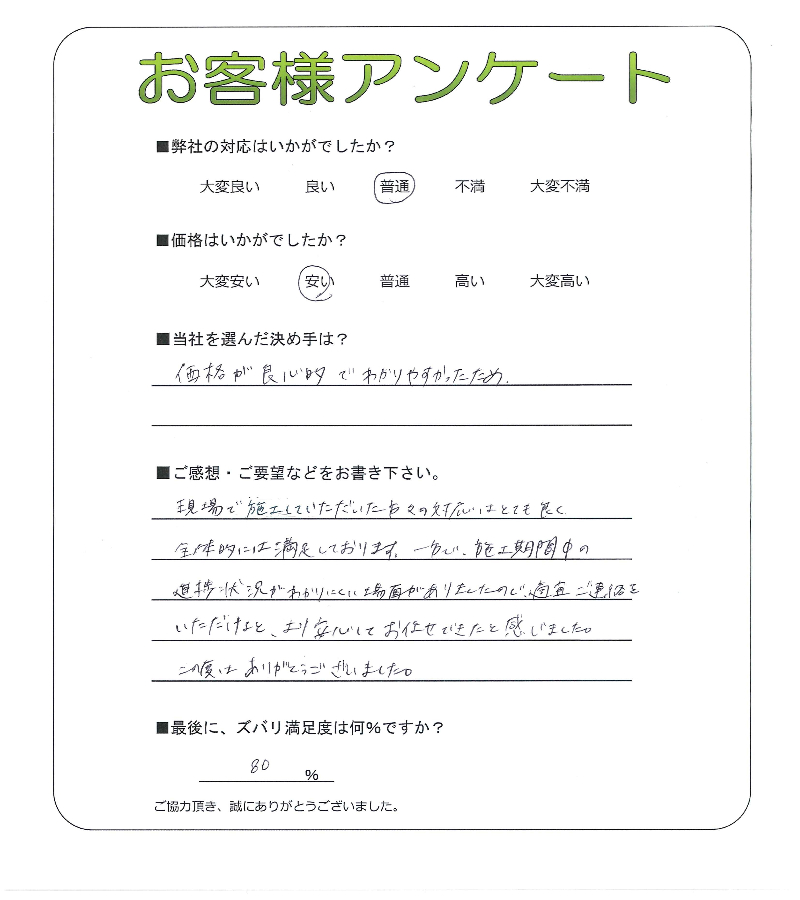 お客様アンケート
■弊社の対応はいかがでしたか?
大変良い 良い 普通 不満 大変不満
■価格はいかがでしたか?
大変安い 安い 普通 高い 大変高い
■当社を選んだ決め手は?
価格が良心的でわかりやすかったため.
■ご感想・ご要望などをお書き下さい。
現場で施工していただいた方々の対応はとても良く
全体的には満足しております。一方で、施工期間中の
進捗状況がわかりにくい場面がありましたので、適宜ご連絡を
いただけると、より安心してお任せできたと感じました。
この度はありがとうございました。
■最後に、ズバリ満足度は何%ですか?
80 %
ご協力頂き、誠にありがとうございました。